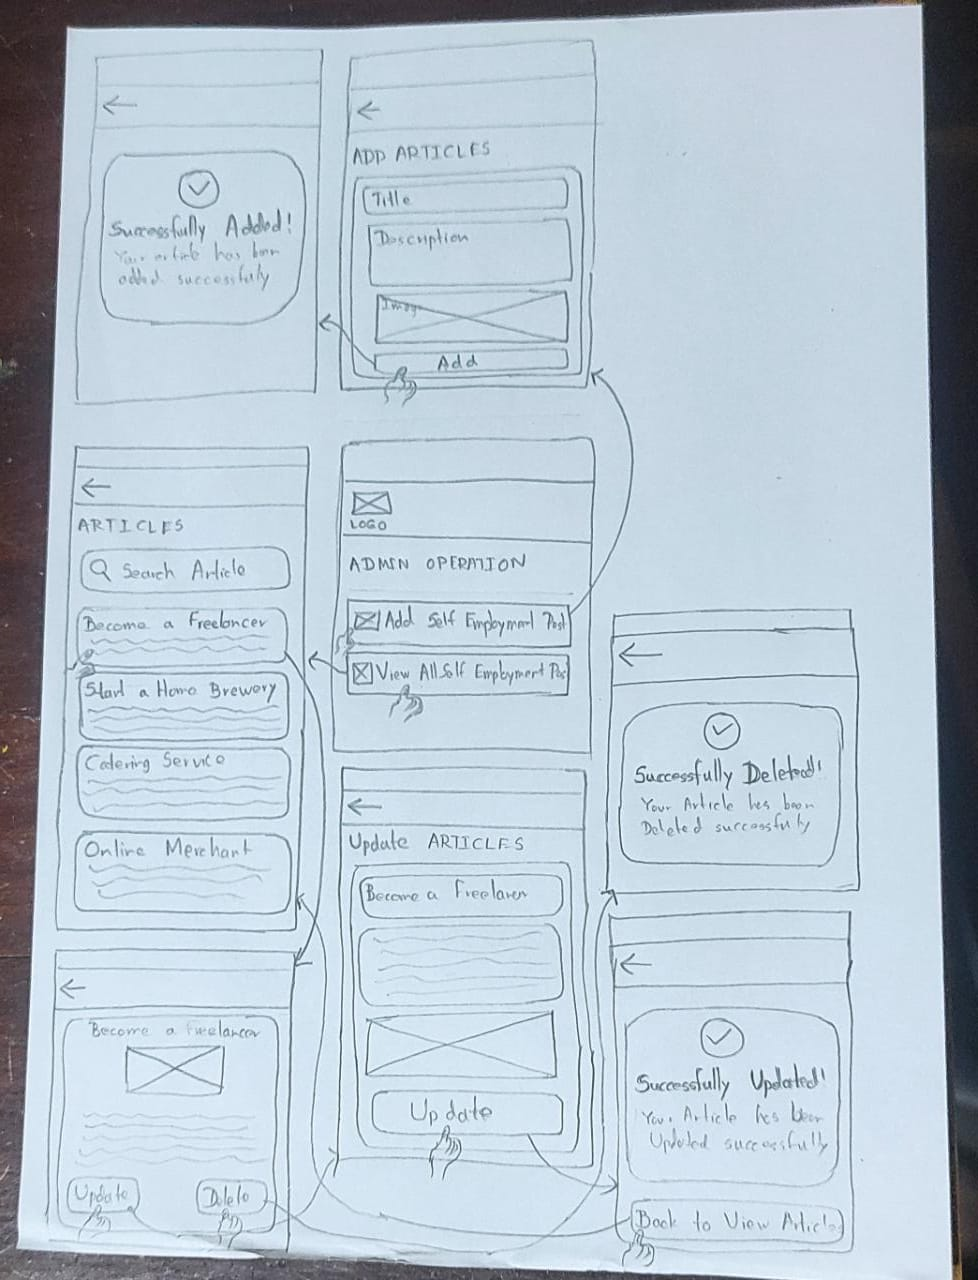 Successfully Added!
Your article has been
added successfully
ADD ARTICLES
Title
Description
Image
Add
ARTICLES
Search Article
Become a Freelancer
Start a Home Brewery
Catering Service
Online Merchant
LOGO
ADMIN OPERATION
Add Self Employment Post
View All Self Employment Pos
Successfully Deleted!
Your Article has been
Deleted successfully
Update ARTICLES
Become a Freelaner
Update
Become a Freelancer
Update
Delete
Successfully Updated!
Your Article has been
Updated successfully
Back to View Articles